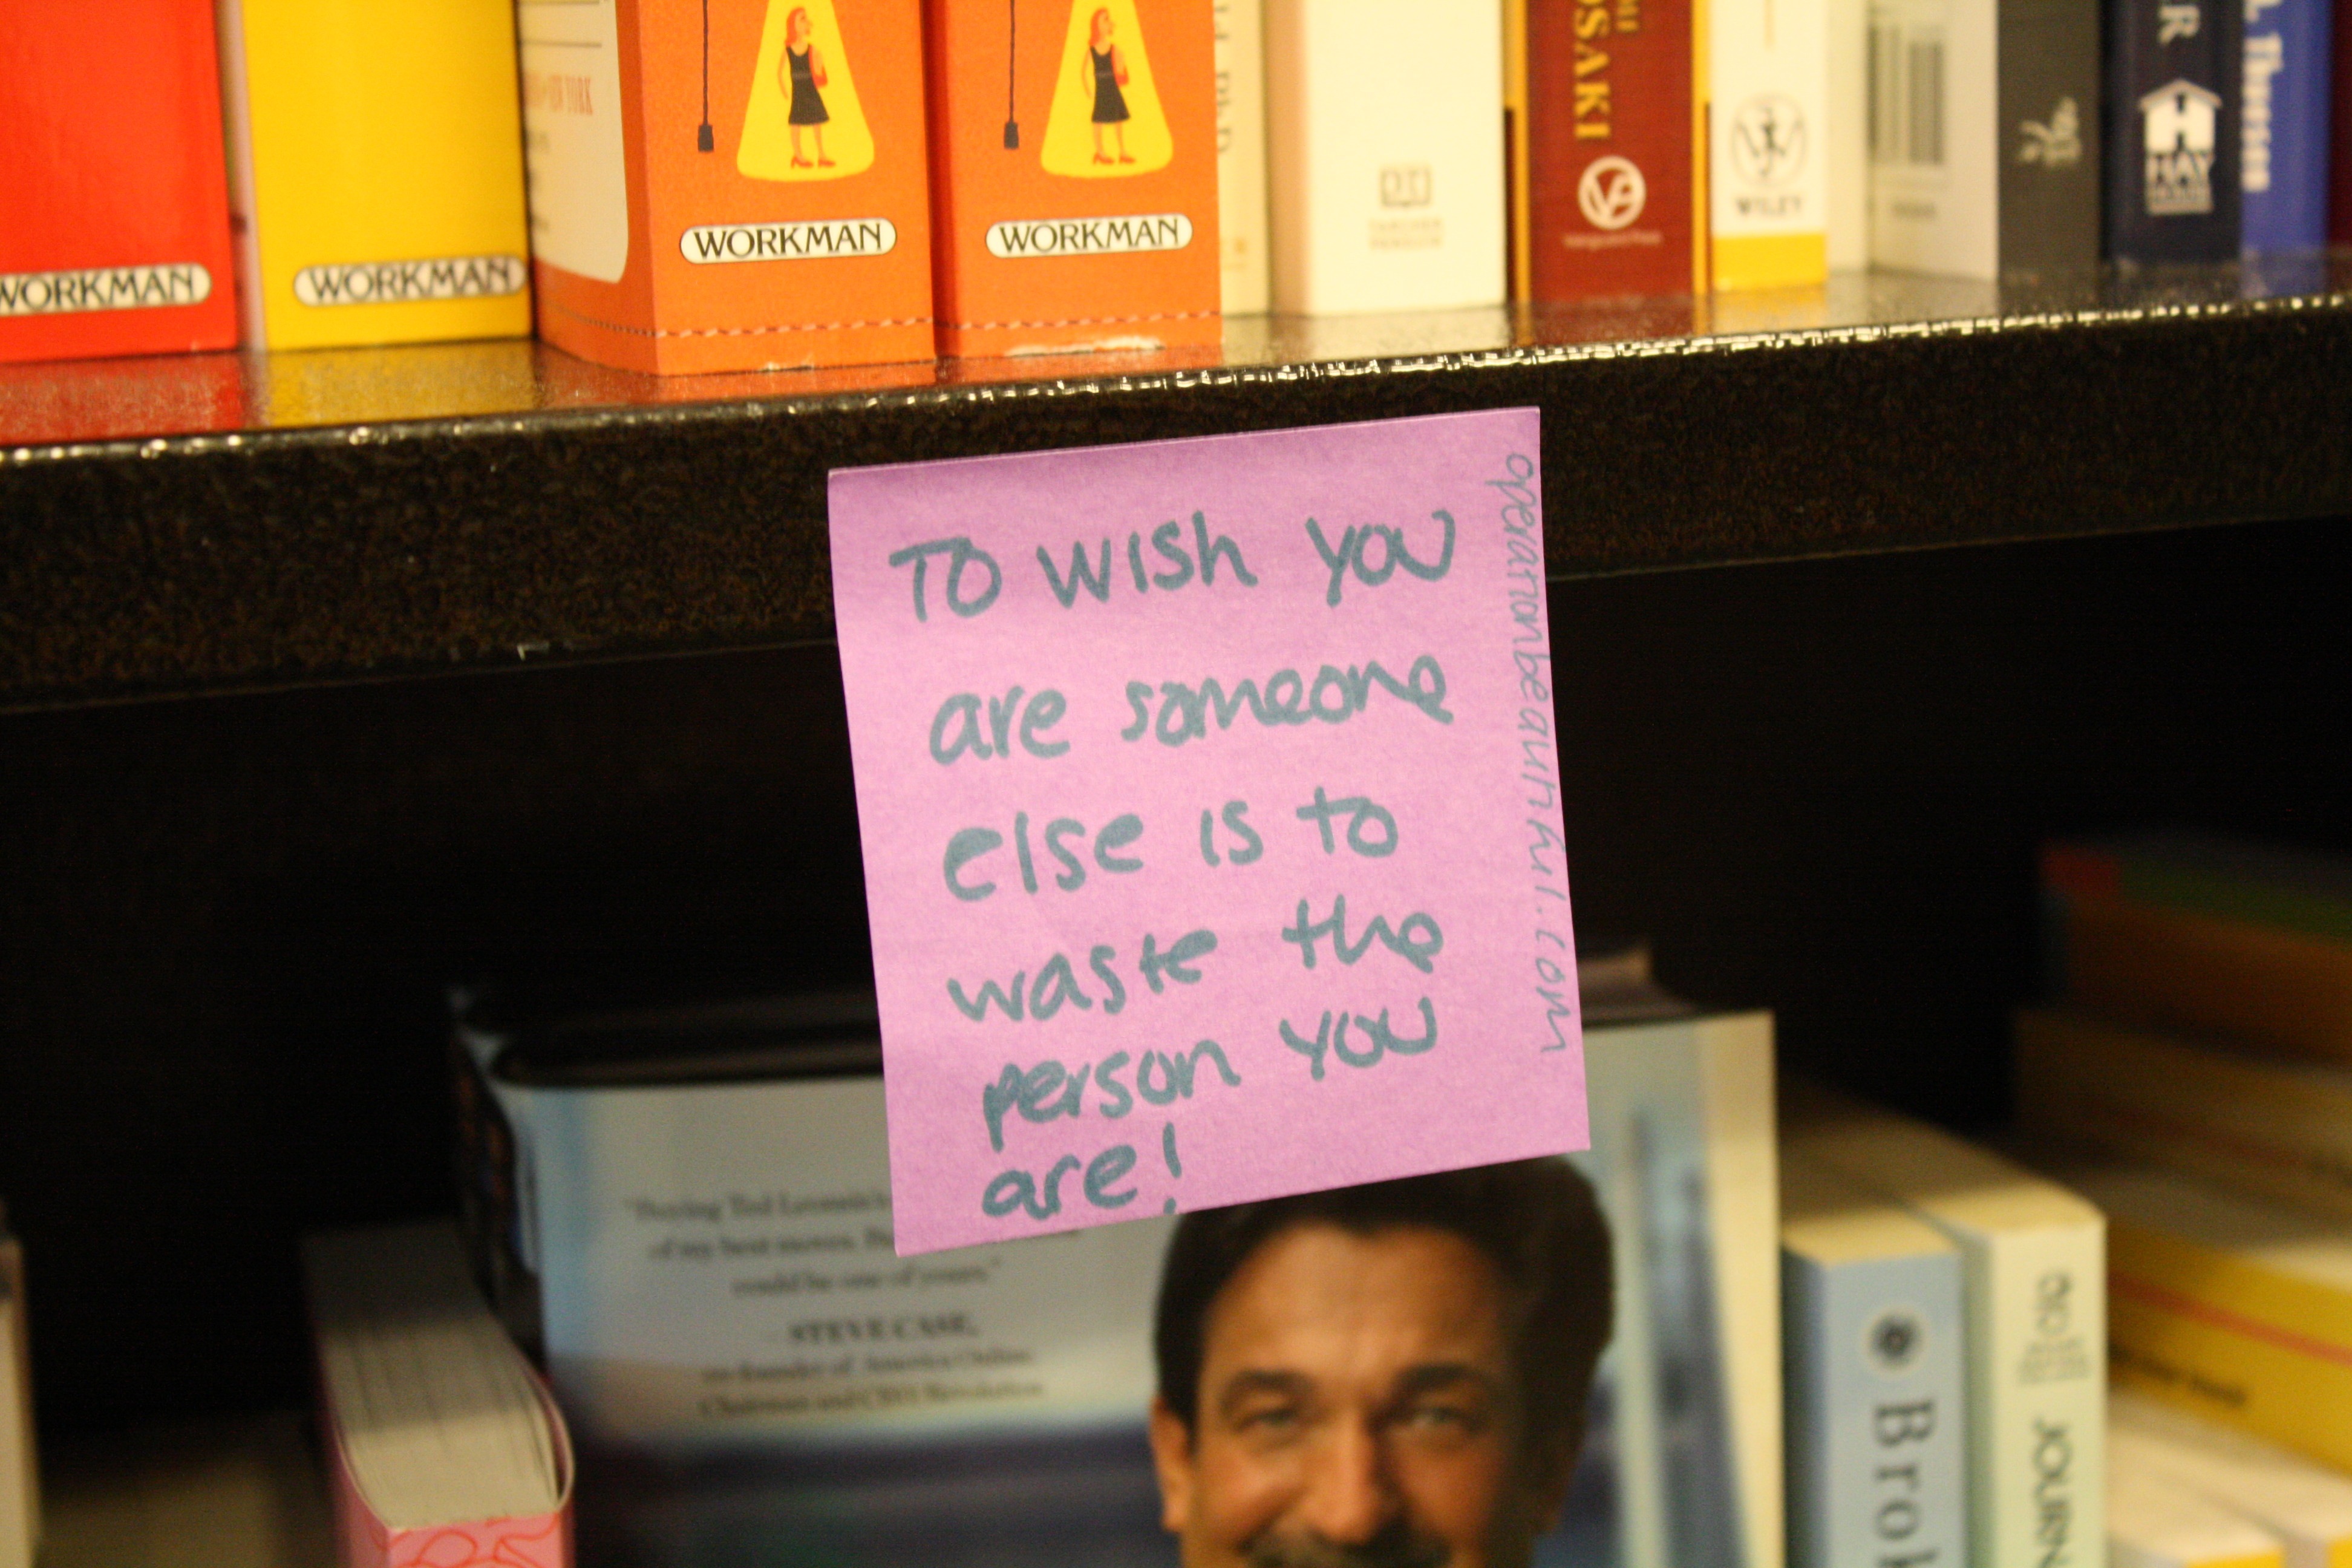 NEW YORK
WORKMAN
WORKMAN
WORKMAN
WORKMAN
OSAKI
WILEY
R
HAY
HOUSE
TO WISH YOU
are someone
else is to
waste the
person you
are!
operationbeautiful.com
"Buying Ted Leonsis's
of my best moves.
could be one of yours."
STEVE CASE,
co-founder of America Online,
Chairman and CEO Revolution
Brok
JOURN